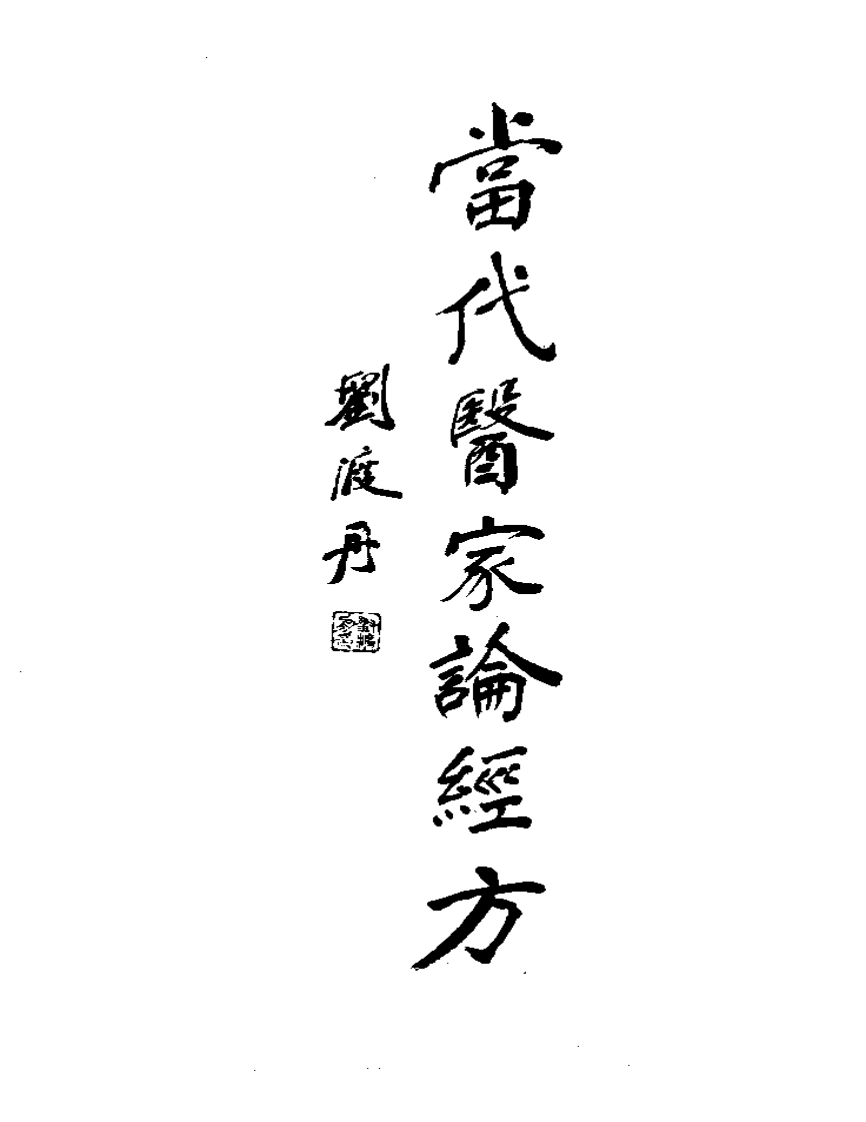 當代醫家論經方
劉渡舟